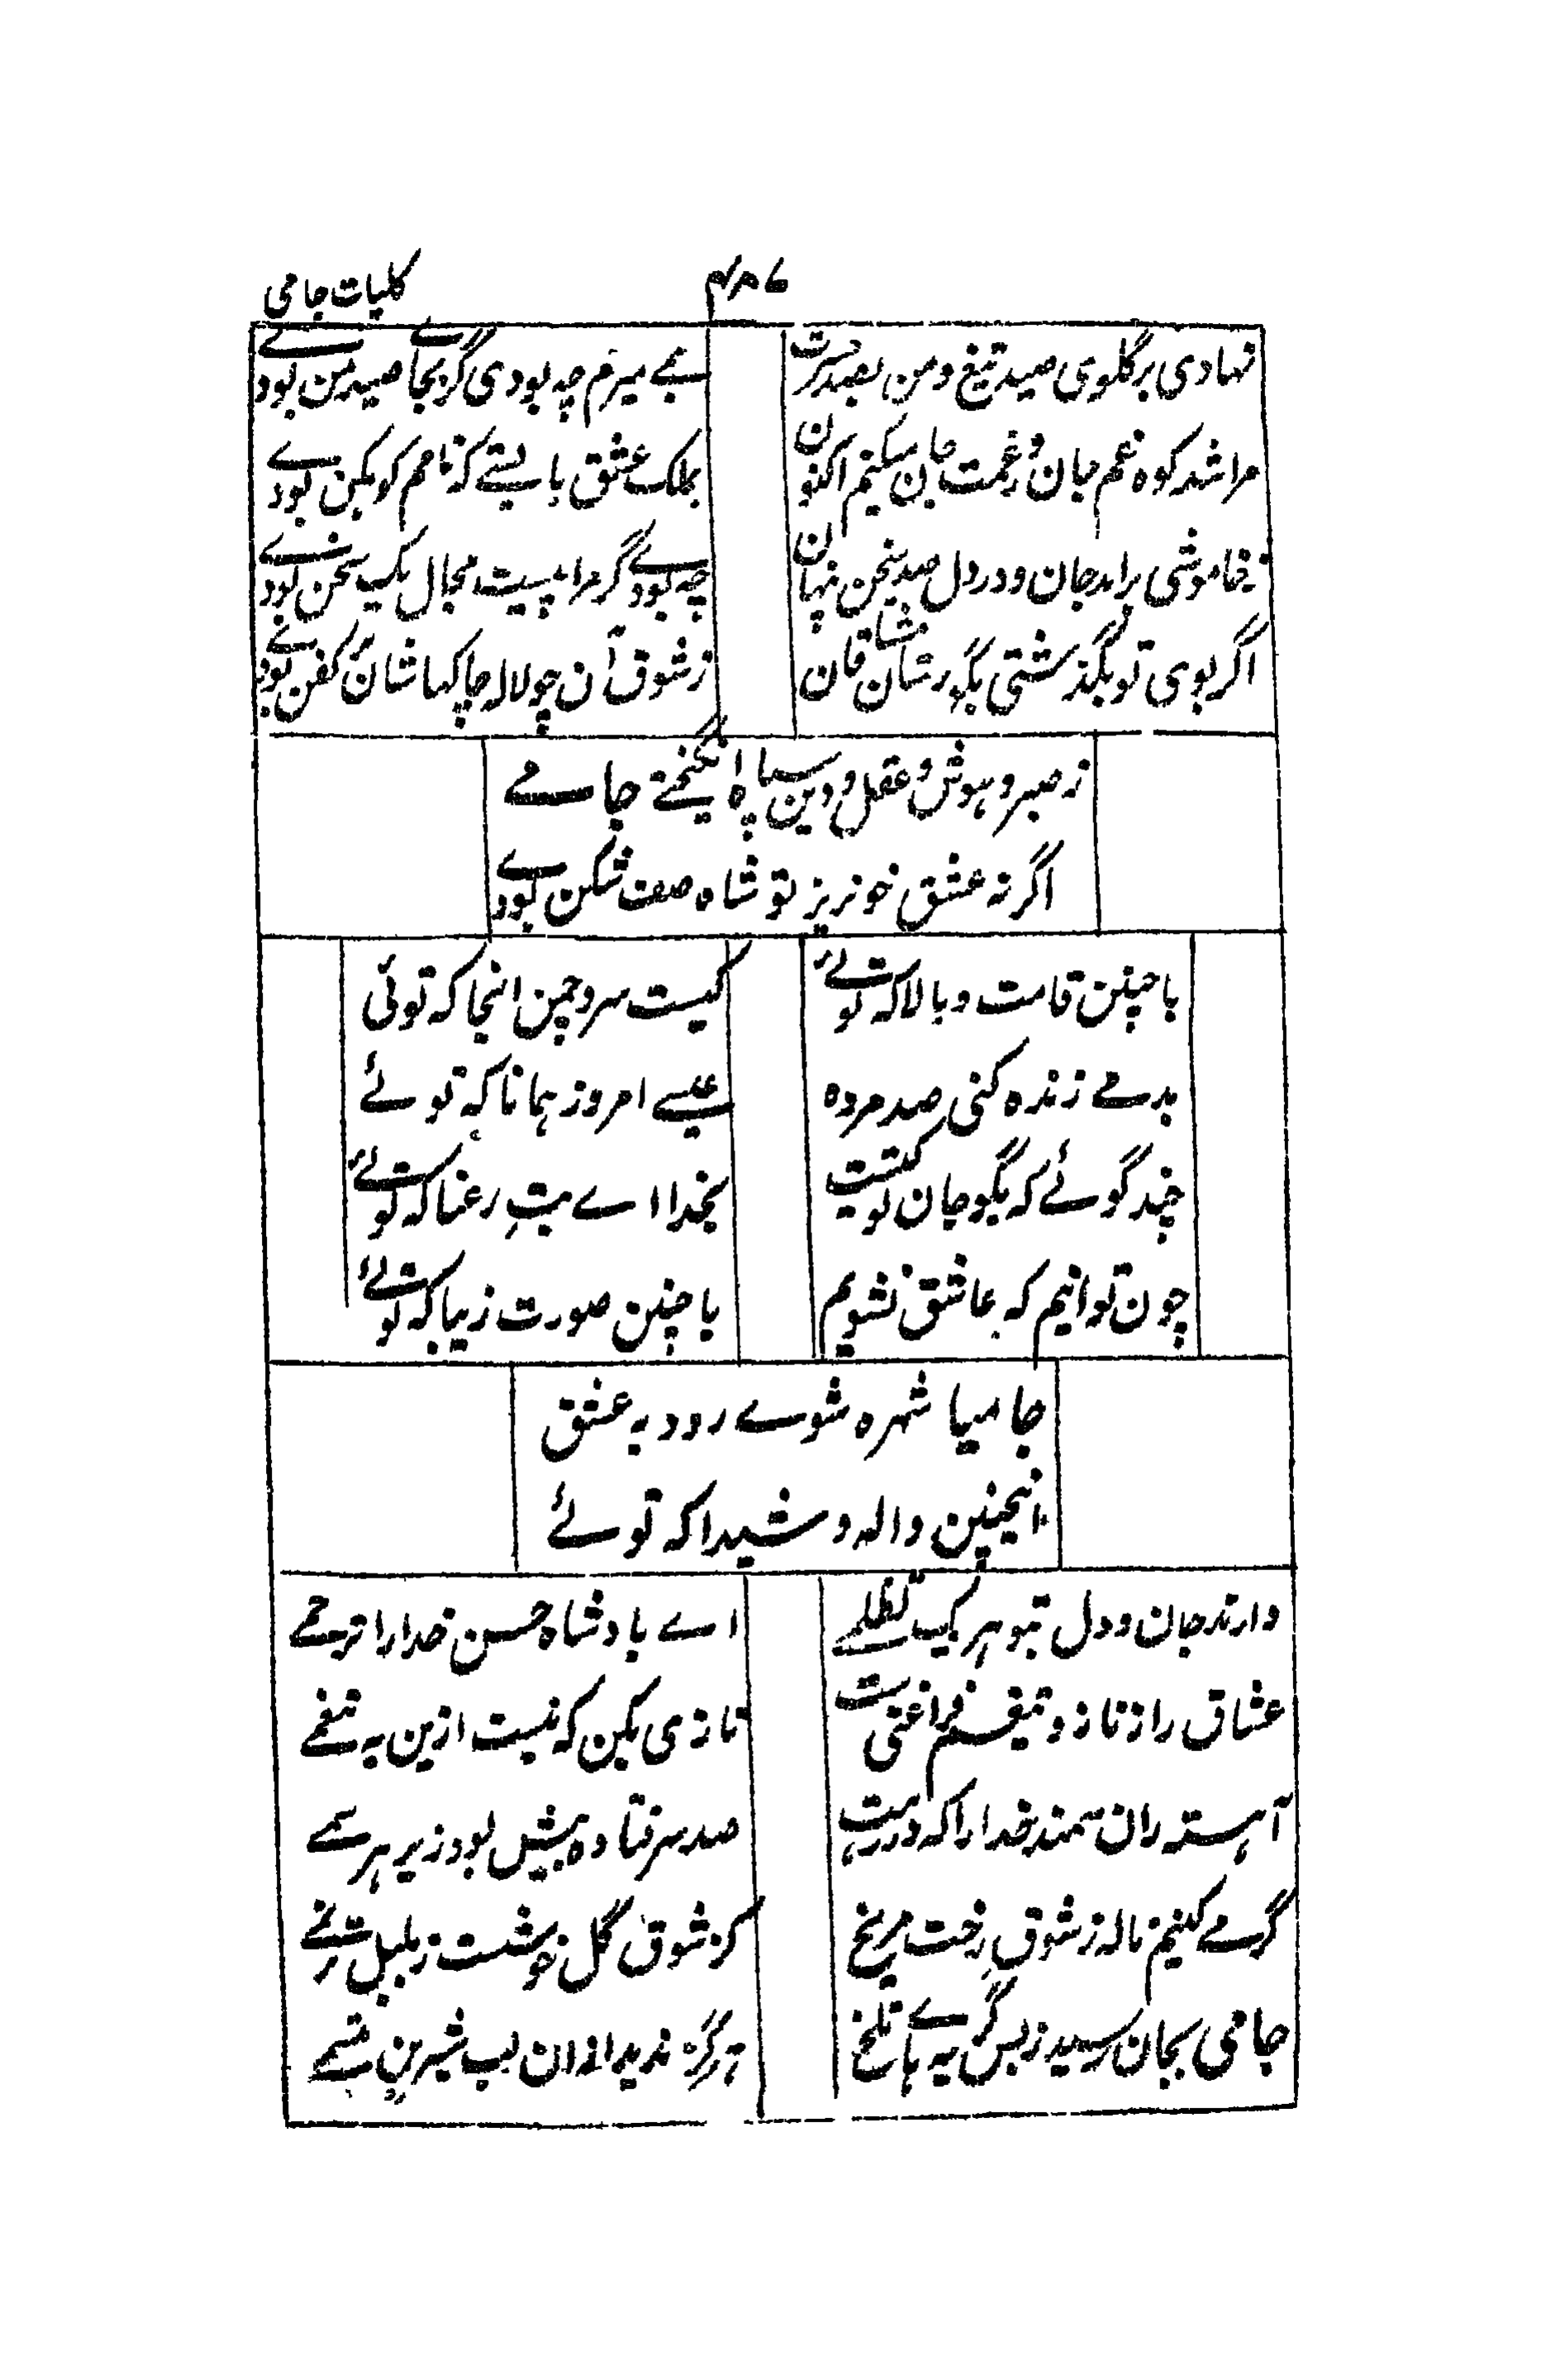 کلیات جامی
نهادی بر گلوی صید تیغ و من بصد حسرت
همے میرم چه بودی گر بجاے صید من بودے
مرا شد کوه غم جان و زغمت جان میکنم اکنون
بملک عشق بایستے که نامم کوهکن بودے
زخاموشی برامد جان و در دل صد سخن پنهان
چه بودے گر مرا پیشت مجال یک سخن بودے
اگر بوی تو بگذشتی بگورستان مشتاقان
ز شوق آن چو لاله چاکها شان در کفن بودے
ز صبر و هوش و عقل و دین سپاه انگیختے جامے
اگر نه عشق خونریز تو شاه صف شکن بودے
با چنین قامت و بالا که توئے
کیست سرو چمن اینجا که توئی
بدمے زنده کنی صد مرده
عیسے امروز همانا که توئے
چند گوئے که بگو جان تو کیست
بخدا اے بت رعنا که توئے
چون توانیم که عاشق نشویم
با چنین صورت زیبا که توئے
جامیا شهره شوے زود به عشق
اینچنین واله و شیدا که توئے
دارند جان و دل بتو هر یک تظلمے
اے بادشاه حسن خدا را ترحمے
عشاق را ز ناز و تنعم فراغتیست
نازی بکن که نیست ازین به تنعمے
آهسته ران سمند خدا را که در رهت
صد سر فتاده بیش بود زیر هر سمے
گر مے کنیم ناله ز شوق رخت مرنج
کز شوق گل خوشست ز بلبل ترنمے
جامی بجان رسید ز بس گریه هاے تلخ
هرگز ندید ازان لب شیرین تبسمے